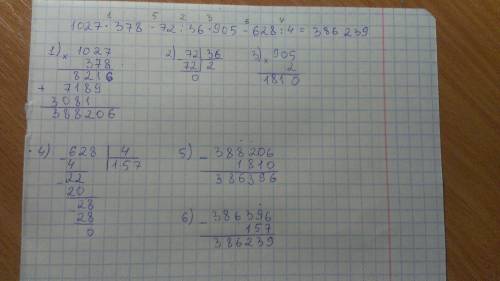 1 5 2 3 6 4
1027 · 378 - 72 : 36 · 905 - 628 : 4 = 386239
1) × 1027
378
8216
+ 7189
3081
388206
2) - 72 | 36
72 | 2
0
3) × 905
2
1810
4) - 628 | 4
4 | 157
- 22
20
28
28
0
5) - 388206
1810
386396
6) - 386396
157
386239